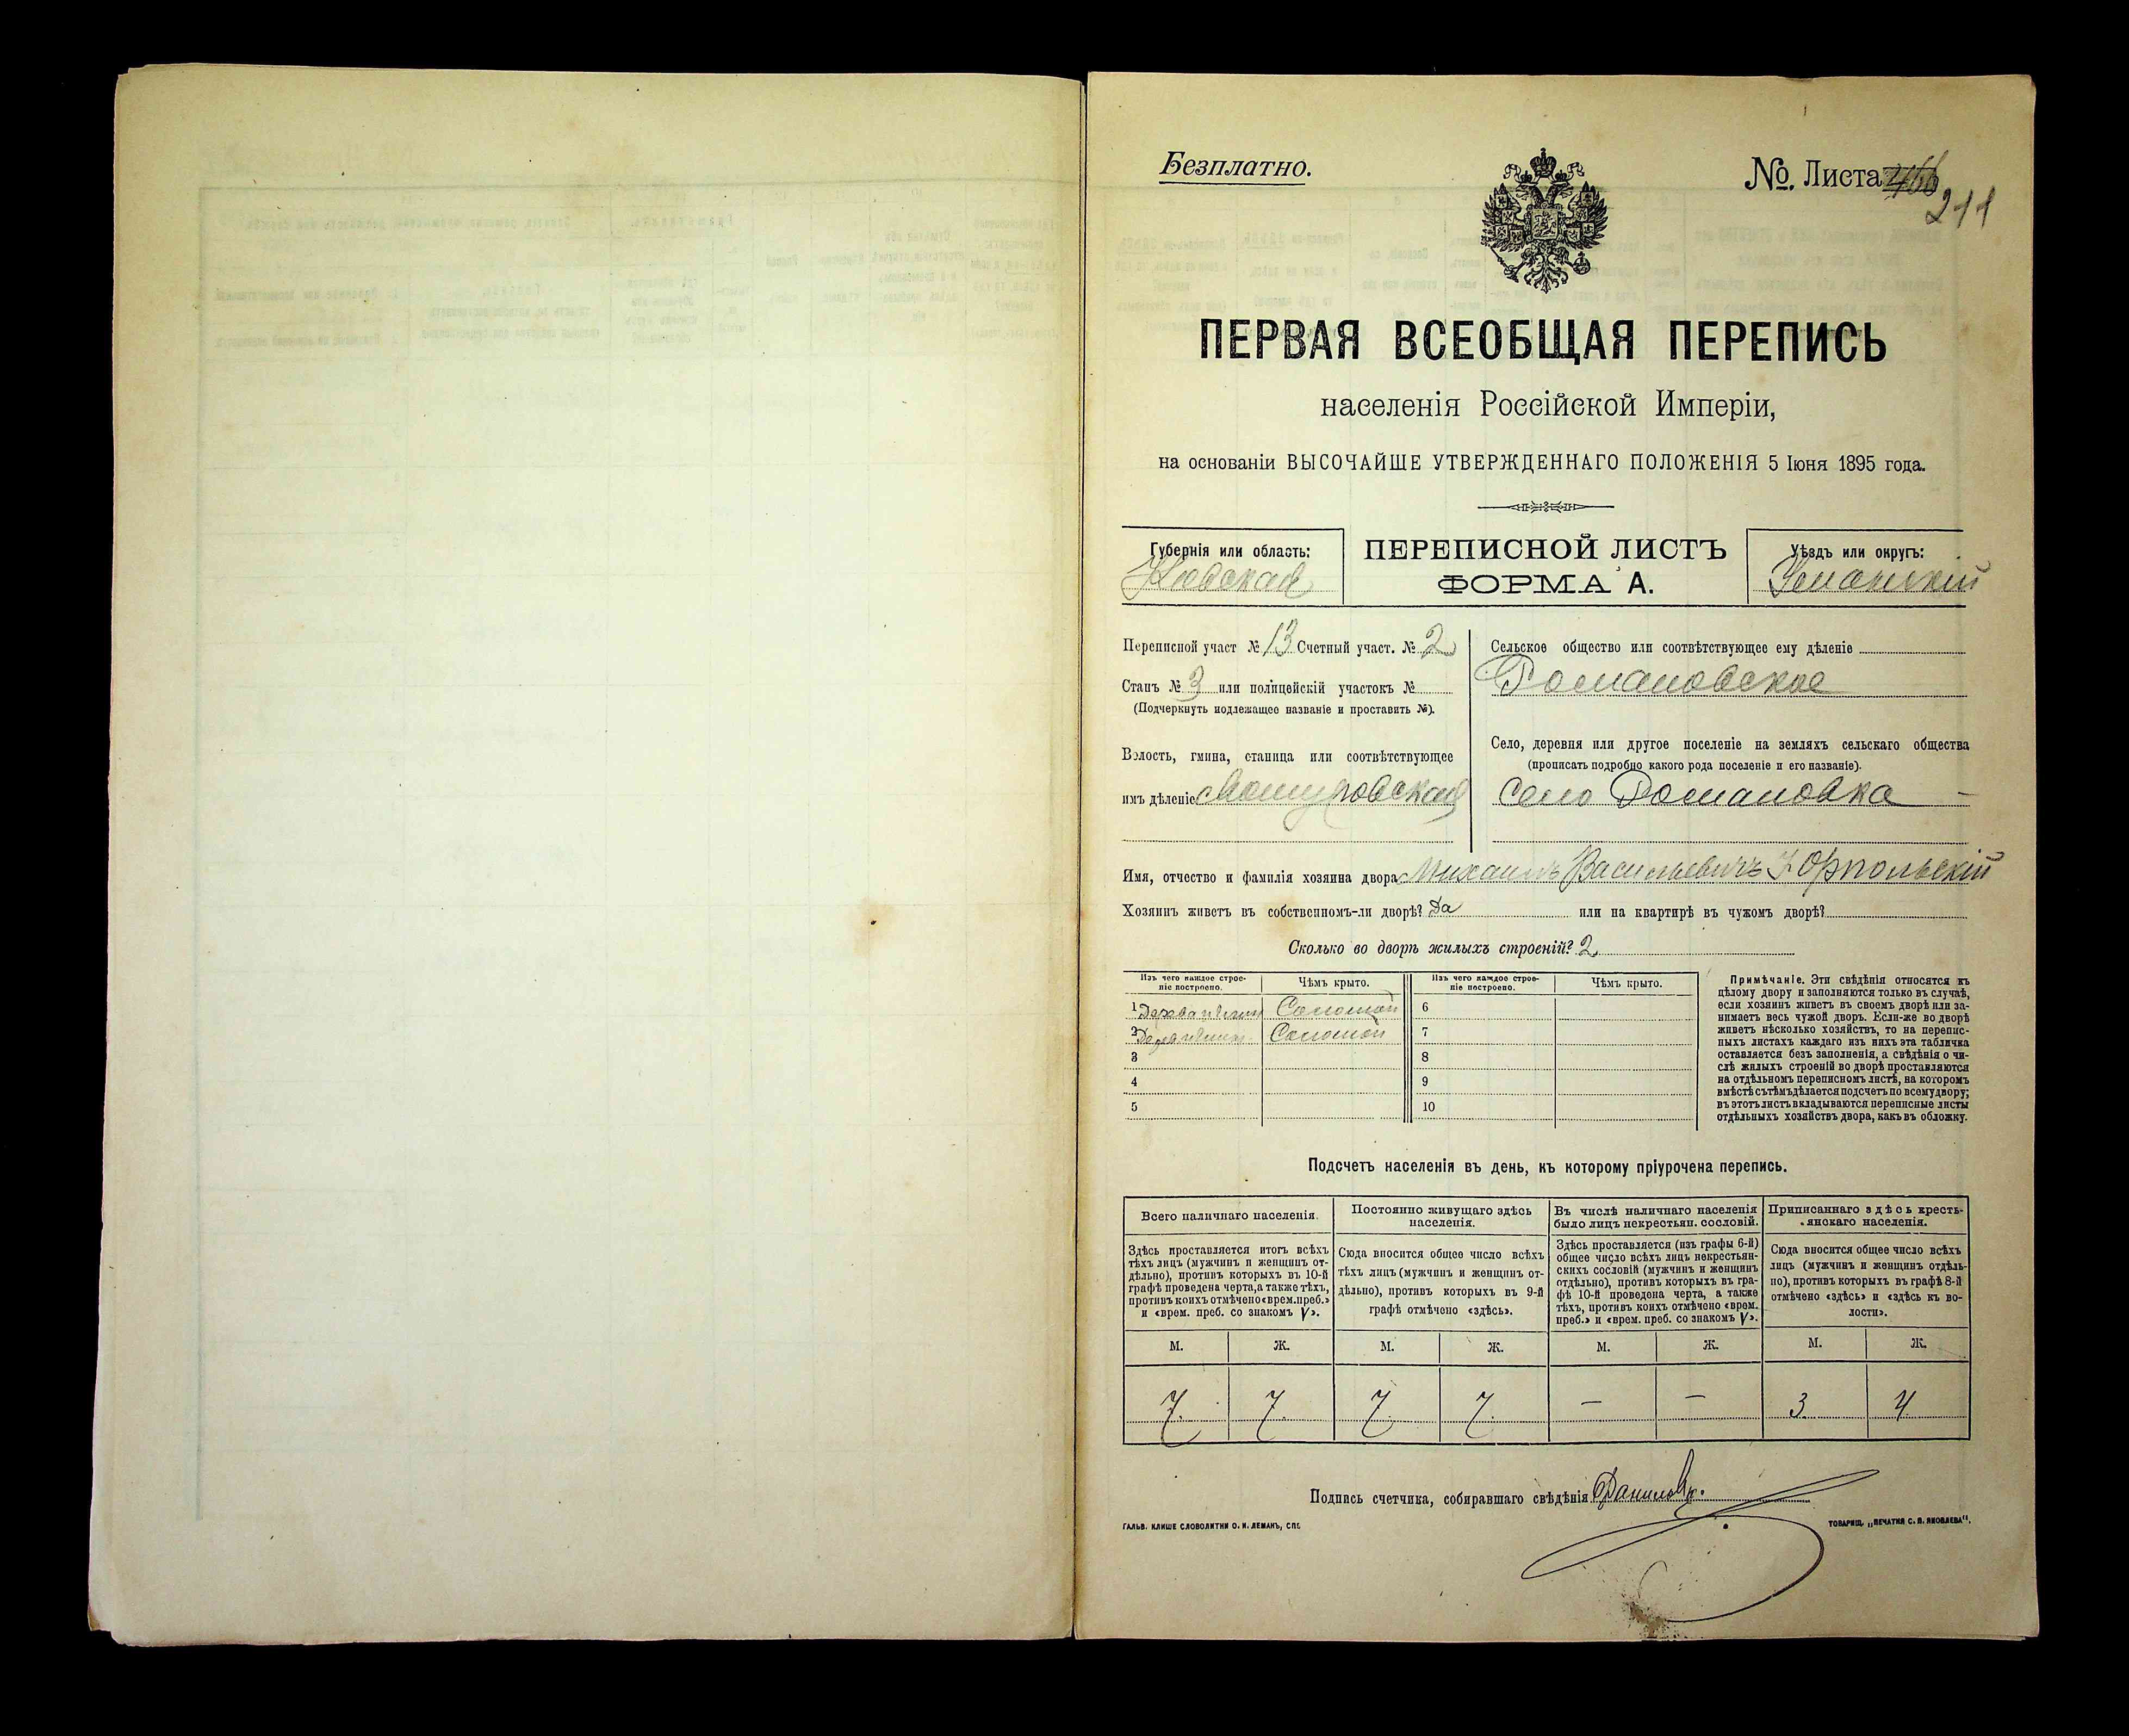 Безплатно.
№. Листа
211
ПЕРВАЯ ВСЕОБЩАЯ ПЕРЕПИСЬ
населенія Россійской Имперіи,
на основаніи ВЫСОЧАЙШЕ УТВЕРЖДЕННАГО ПОЛОЖЕНІЯ 5 Іюня 1895 года.
Губернія или область:
Кіевская
ПЕРЕПИСНОЙ ЛИСТЪ
ФОРМА А.
Уѣздъ или округъ:
Уманскій
Переписной участ № 13 Счетный участ. № 2
Станъ № 3 или полицейскій участокъ №
(Подчеркнуть подлежащее названіе и проставить №).
Волость, гмина, станица или соотвѣтствующее
имъ дѣленіе
Сельское общество или соотвѣтствующее ему дѣленіе
Романовское
Село, деревня или другое поселеніе на земляхъ сельскаго общества
(прописать подробно какого рода поселеніе и его названіе).
село Романовка
Имя, отчество и фамилія хозяина двора Михаилъ Васильевичъ
Хозяинъ живетъ въ собственномъ-ли дворѣ? Да или на квартирѣ въ чужомъ дворѣ?
Сколько во дворѣ жилыхъ строеній? 2
Изъ чего каждое строе-
ніе построено.
Чѣмъ крыто.
Изъ чего каждое строе-
ніе построено.
Чѣмъ крыто.
1 Соломой 6
2 Соломой 7
3 8
4 9
5 10
Примѣчаніе. Эти свѣдѣнія относятся къ
цѣлому двору и заполняются только въ случаѣ,
если хозяинъ живетъ въ своемъ дворѣ или за-
нимаетъ весь чужой дворъ. Если-же во дворѣ
живетъ нѣсколько хозяйствъ, то на перепис-
ныхъ листахъ каждаго изъ нихъ эта табличка
оставляется безъ заполненія, а свѣдѣнія о чи-
слѣ жилыхъ строеній во дворѣ проставляются
на отдѣльномъ переписномъ листѣ, на которомъ
вмѣстѣ съ тѣмъ дѣлается подсчетъ по всему двору;
въ этотъ листъ вкладываются переписные листы
отдѣльныхъ хозяйствъ двора, какъ въ обложку.
Подсчетъ населенія въ день, къ которому пріурочена перепись.
Всего наличнаго населенія.
Здѣсь проставляется итогъ всѣхъ
тѣхъ лицъ (мужчинъ и женщинъ от-
дѣльно), противъ которыхъ въ 10-й
графѣ проведена черта, а также тѣхъ,
противъ коихъ отмѣчено «врем. преб.»
и «врем. преб. со знакомъ V».
Постоянно живущаго здѣсь
населенія.
Сюда вносится общее число всѣхъ
тѣхъ лицъ (мужчинъ и женщинъ от-
дѣльно), противъ которыхъ въ 9-й
графѣ отмѣчено «здѣсь».
Въ числѣ наличнаго населенія
было лицъ некрестьян. сословій.
Здѣсь проставляется (изъ графы 6-й)
общее число всѣхъ лицъ некрестьян-
скихъ сословій (мужчинъ и женщинъ
отдѣльно), противъ которыхъ въ гра-
фѣ 10-й проведена черта, а также
тѣхъ, противъ коихъ отмѣчено «врем.
преб.» и «врем. преб. со знакомъ V».
Приписаннаго здѣсь кресть-
янскаго населенія.
Сюда вносится общее число всѣхъ
лицъ (мужчинъ и женщинъ отдѣль-
но), противъ которыхъ въ графѣ 8-й
отмѣчено «здѣсь» и «здѣсь къ во-
лости».
М. Ж. М. Ж. М. Ж. М. Ж.
7. 7. 7. 7. — — 3 4
Подпись счетчика, собиравшаго свѣдѣнія
ГАЛЬВ. КЛИШЕ СЛОВОЛИТНИ О. И. ЛЕМАНЪ, СПБ.
ТОВАРИЩ. „ПЕЧАТНЯ С. П. ЯКОВЛЕВА".